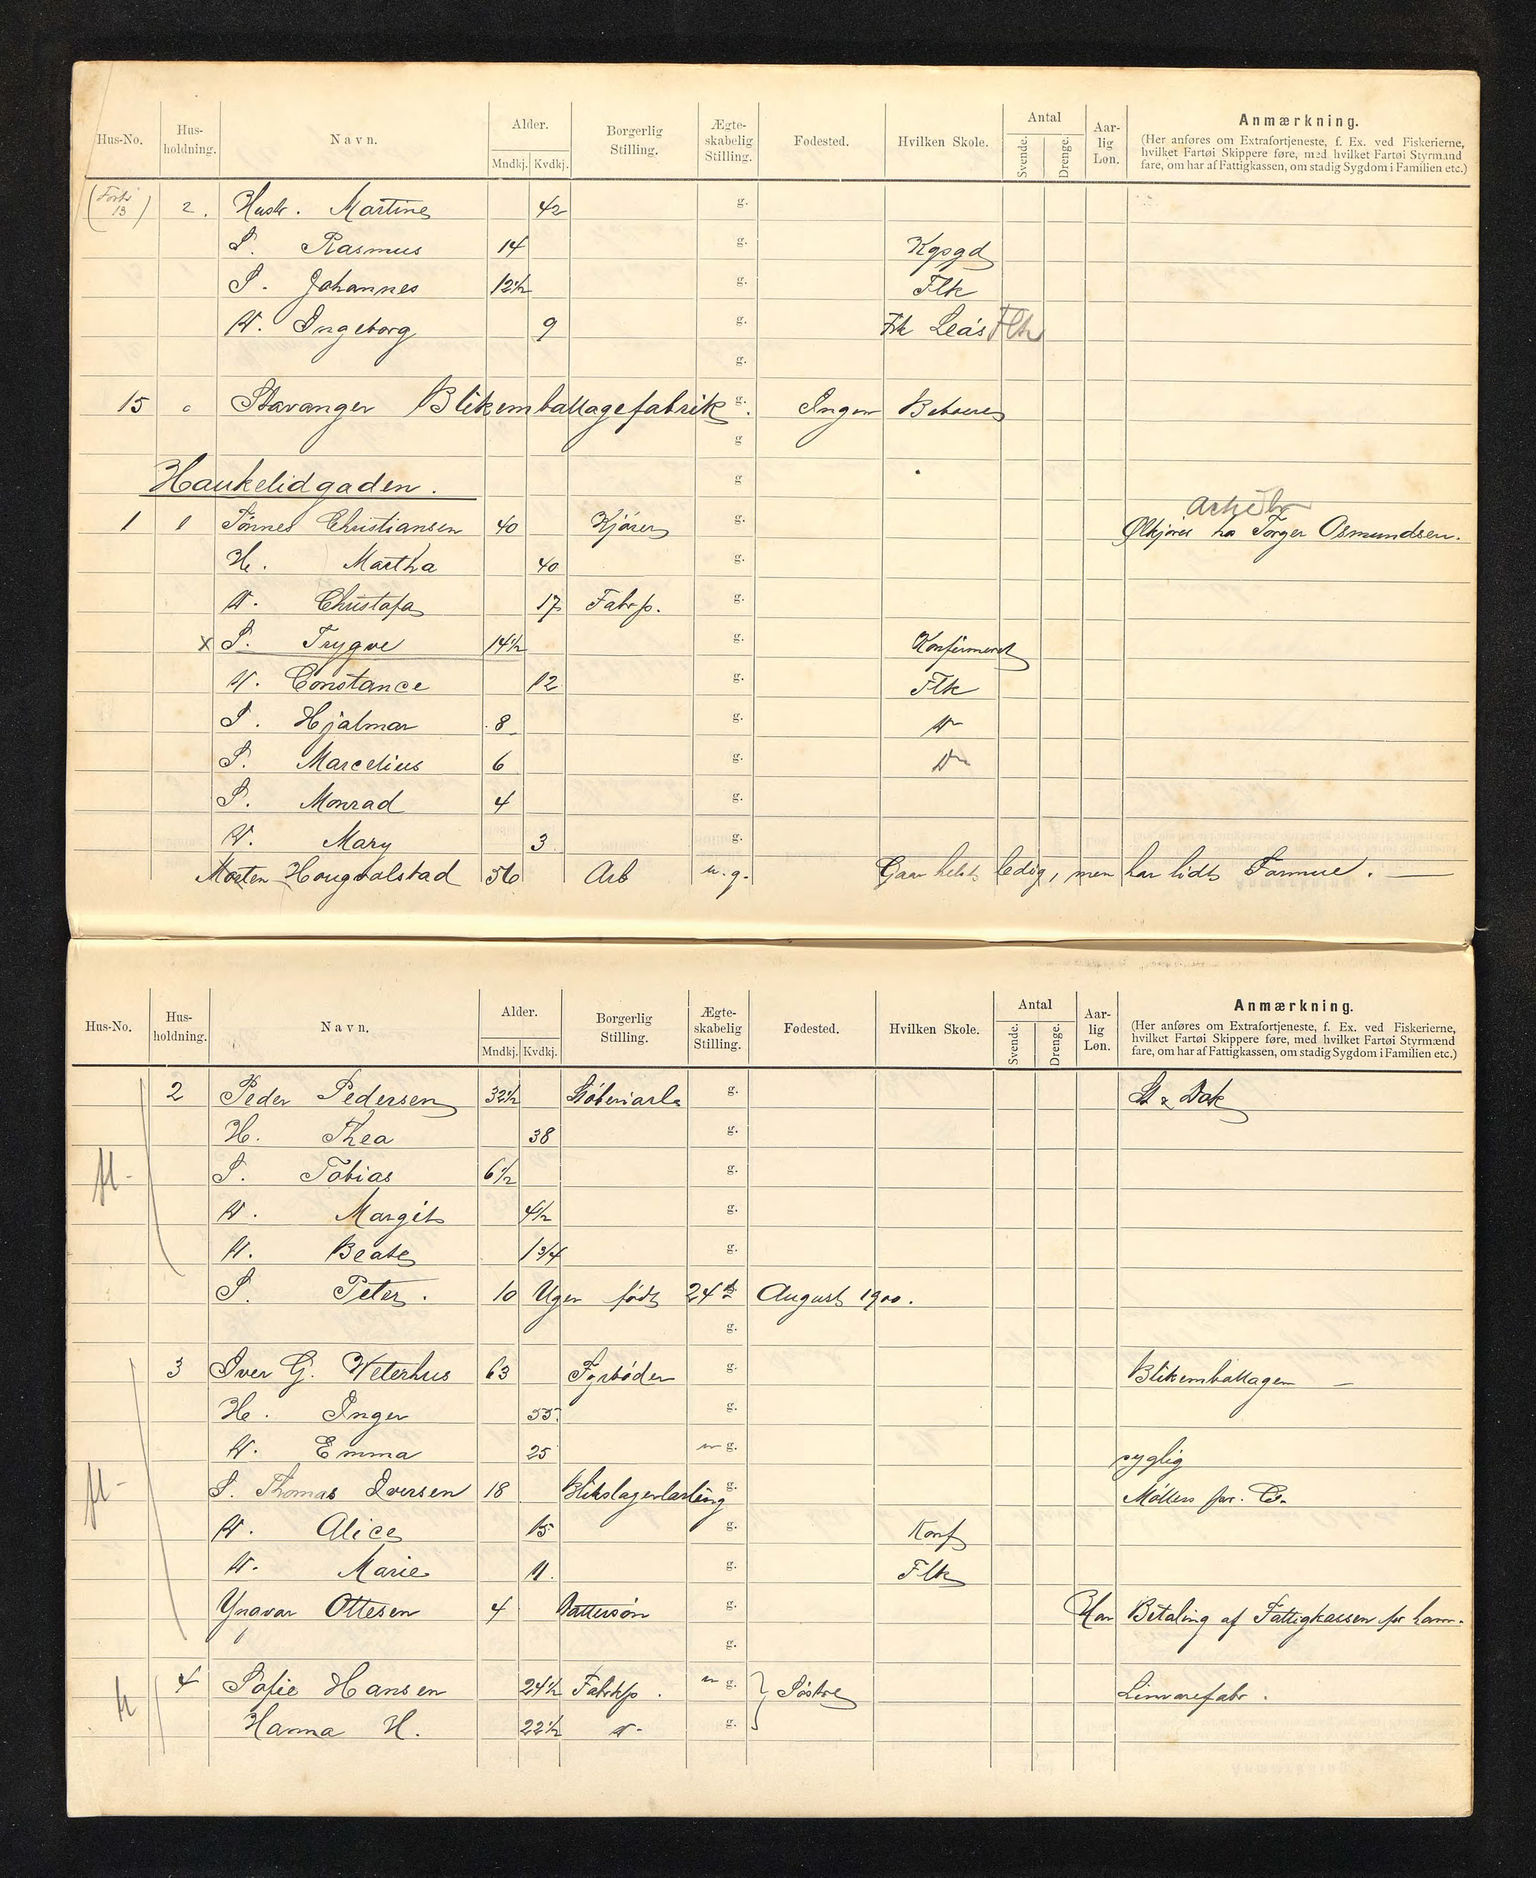 Hus-No. Hus-holdning. Navn. Alder. Mndkj. Kvdkj. Borgerlig Stilling. Ægte-skabelig Stilling. Fødested. Hvilken Skole. Antal Svende. Drenge. Aar-lig Løn. Anmærkning.
(Her anføres om Extrafortjeneste, f. Ex. ved Fiskerierne, hvilket Fartøi Skippere føre, med hvilket Fartøi Styrmænd fare, om har af Fattigkassen, om stadig Sygdom i Familien etc.)
(Forts 13) 2. Hustr. Martine 42 g.
S. Rasmus 14 g. Kgsgd
S. Johannes 12½ g. Flk
D. Ingeborg 9 g. Frk Leas Flk
g.
15 0 Stavanger Blikemballagefabrik g. Ingen Beboere
g.
Haukelidgaden. g.
1 1 Tønnes Christiansen 40 Kjører g. Ølkjører hos Torger Osmundsen.
H. Martha 40 g.
D. Christofa 17 Fabrp. g.
x S. Trygve 14½ g. Konfirmeret
D. Constance 12 g. Flk
S. Hjalmar 8 g. Do
S. Marcelius 6 g. Do
S. Monrad 4 g.
D. Mary 3 g.
Morten Hougvalstad 56 Arb u. g. Gaar helst ledig, men har lidt Formue. —
Hus-No. Hus-holdning. Navn. Alder. Mndkj. Kvdkj. Borgerlig Stilling. Ægte-skabelig Stilling. Fødested. Hvilken Skole. Antal Svende. Drenge. Aar-lig Løn. Anmærkning.
(Her anføres om Extrafortjeneste, f. Ex. ved Fiskerierne, hvilket Fartøi Skippere føre, med hvilket Fartøi Styrmænd fare, om har af Fattigkassen, om stadig Sygdom i Familien etc.)
2 Peder Pedersen 32½ Støberiarb g. St & Dok
H. Thea 38 g.
S. Tobias 6½ g.
D. Margit 4½ g.
D. Beate 1 3/4 g.
S. Peter. 10 Uger født 24de August 1900.
g.
3 Iver G. Veterhus 63 Fyrbøder g. Blikemballagen —
H. Inger 55. g.
D. Emma 25 u g. syglig
S. Thomas Iversen 18 Blikslagerlærling g. Møllers pr. Co.
D. Alice 15 g. Konf
D. Marie 11. g. Flk
Yngvar Ottesen 4 Dattersøn g. Har Betaling af Fattigkassen for ham.
g.
4 Sofie Hansen 24½ Fabrkp. u g. } Søstre Linvarefabr.
Hanna H. 22½ Do g.